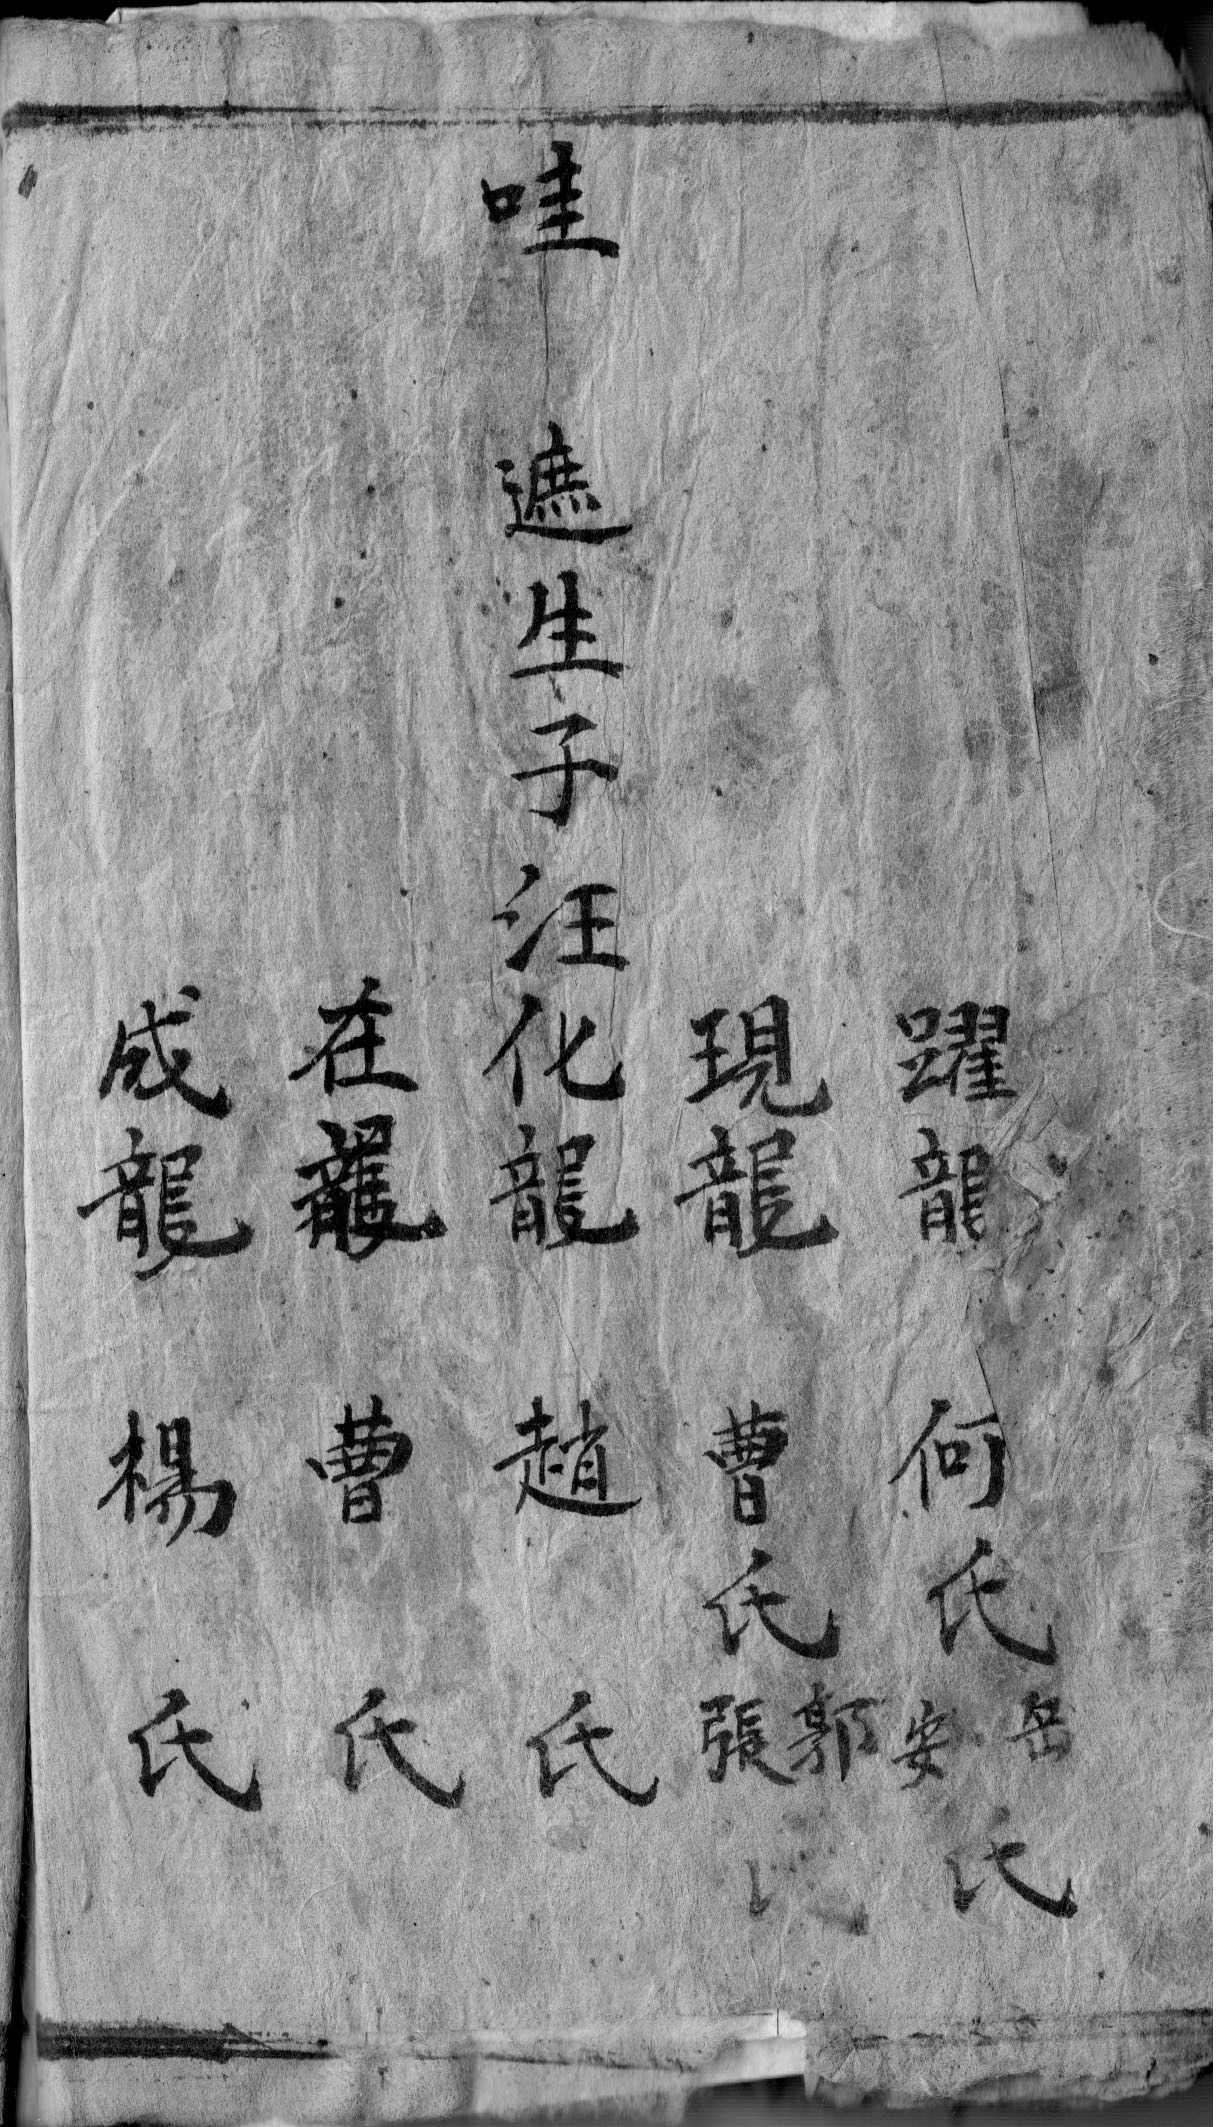 躍龍 何氏 安岳氏
現龍 曹氏 張郭氏
哇 遮生子汪化龍 趙氏
在龍 曹氏
成龍 楊氏